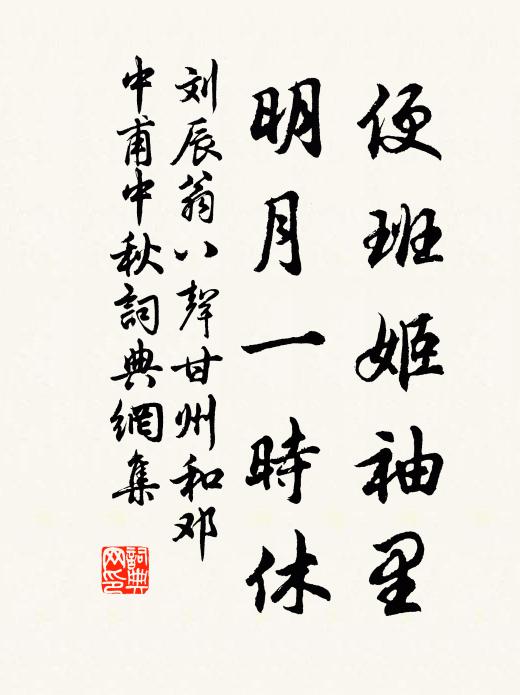 便班姬袖里
明月一時休
刘辰翁八聲甘州和邓
中甫中秋詞典網集
詞典网印